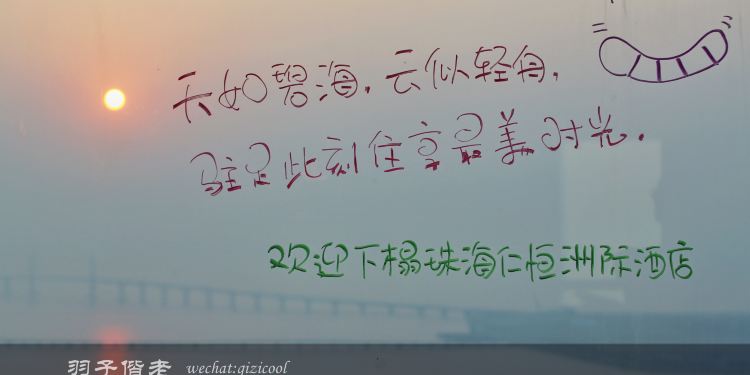 天如碧海，云似轻舟，
驻足此刻住享最美时光．
欢迎下榻珠海仁恒洲际酒店
羽子偕老 wechat:qizicool